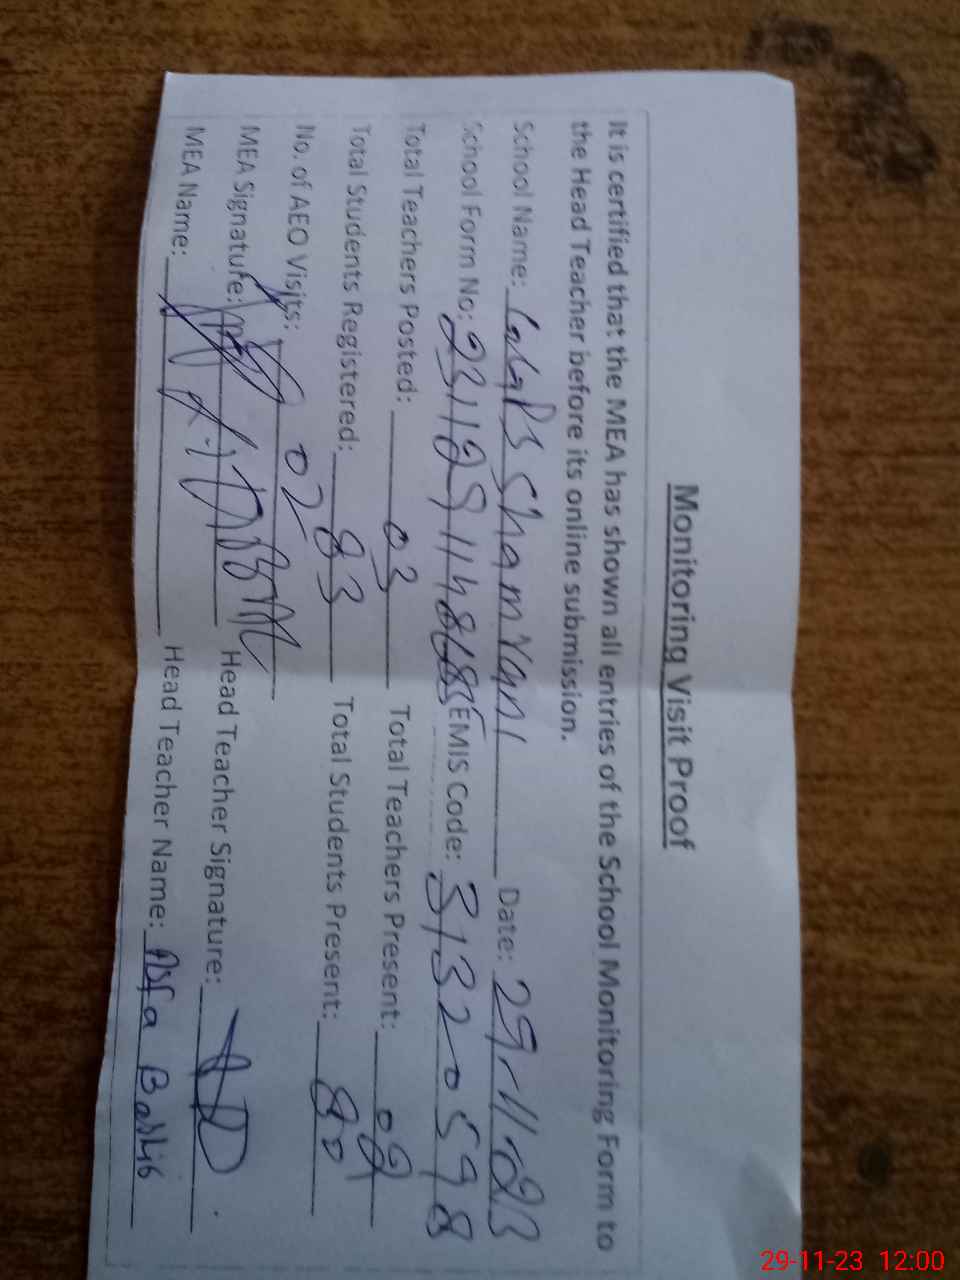 Monitoring Visit Proof
It is certified that the MEA has shown all entries of the School Monitoring Form to
the Head Teacher before its online submission.
School Name: Date: 29-11-23
School Form No: EMIS Code: 31320598
Total Teachers Posted: 03 Total Teachers Present: 02
Total Students Registered: 83 Total Students Present: 80
No. of AEO Visits: 02
MEA Signature: Head Teacher Signature:
MEA Name: Head Teacher Name: Asfa Bashir
29-11-23 12:00